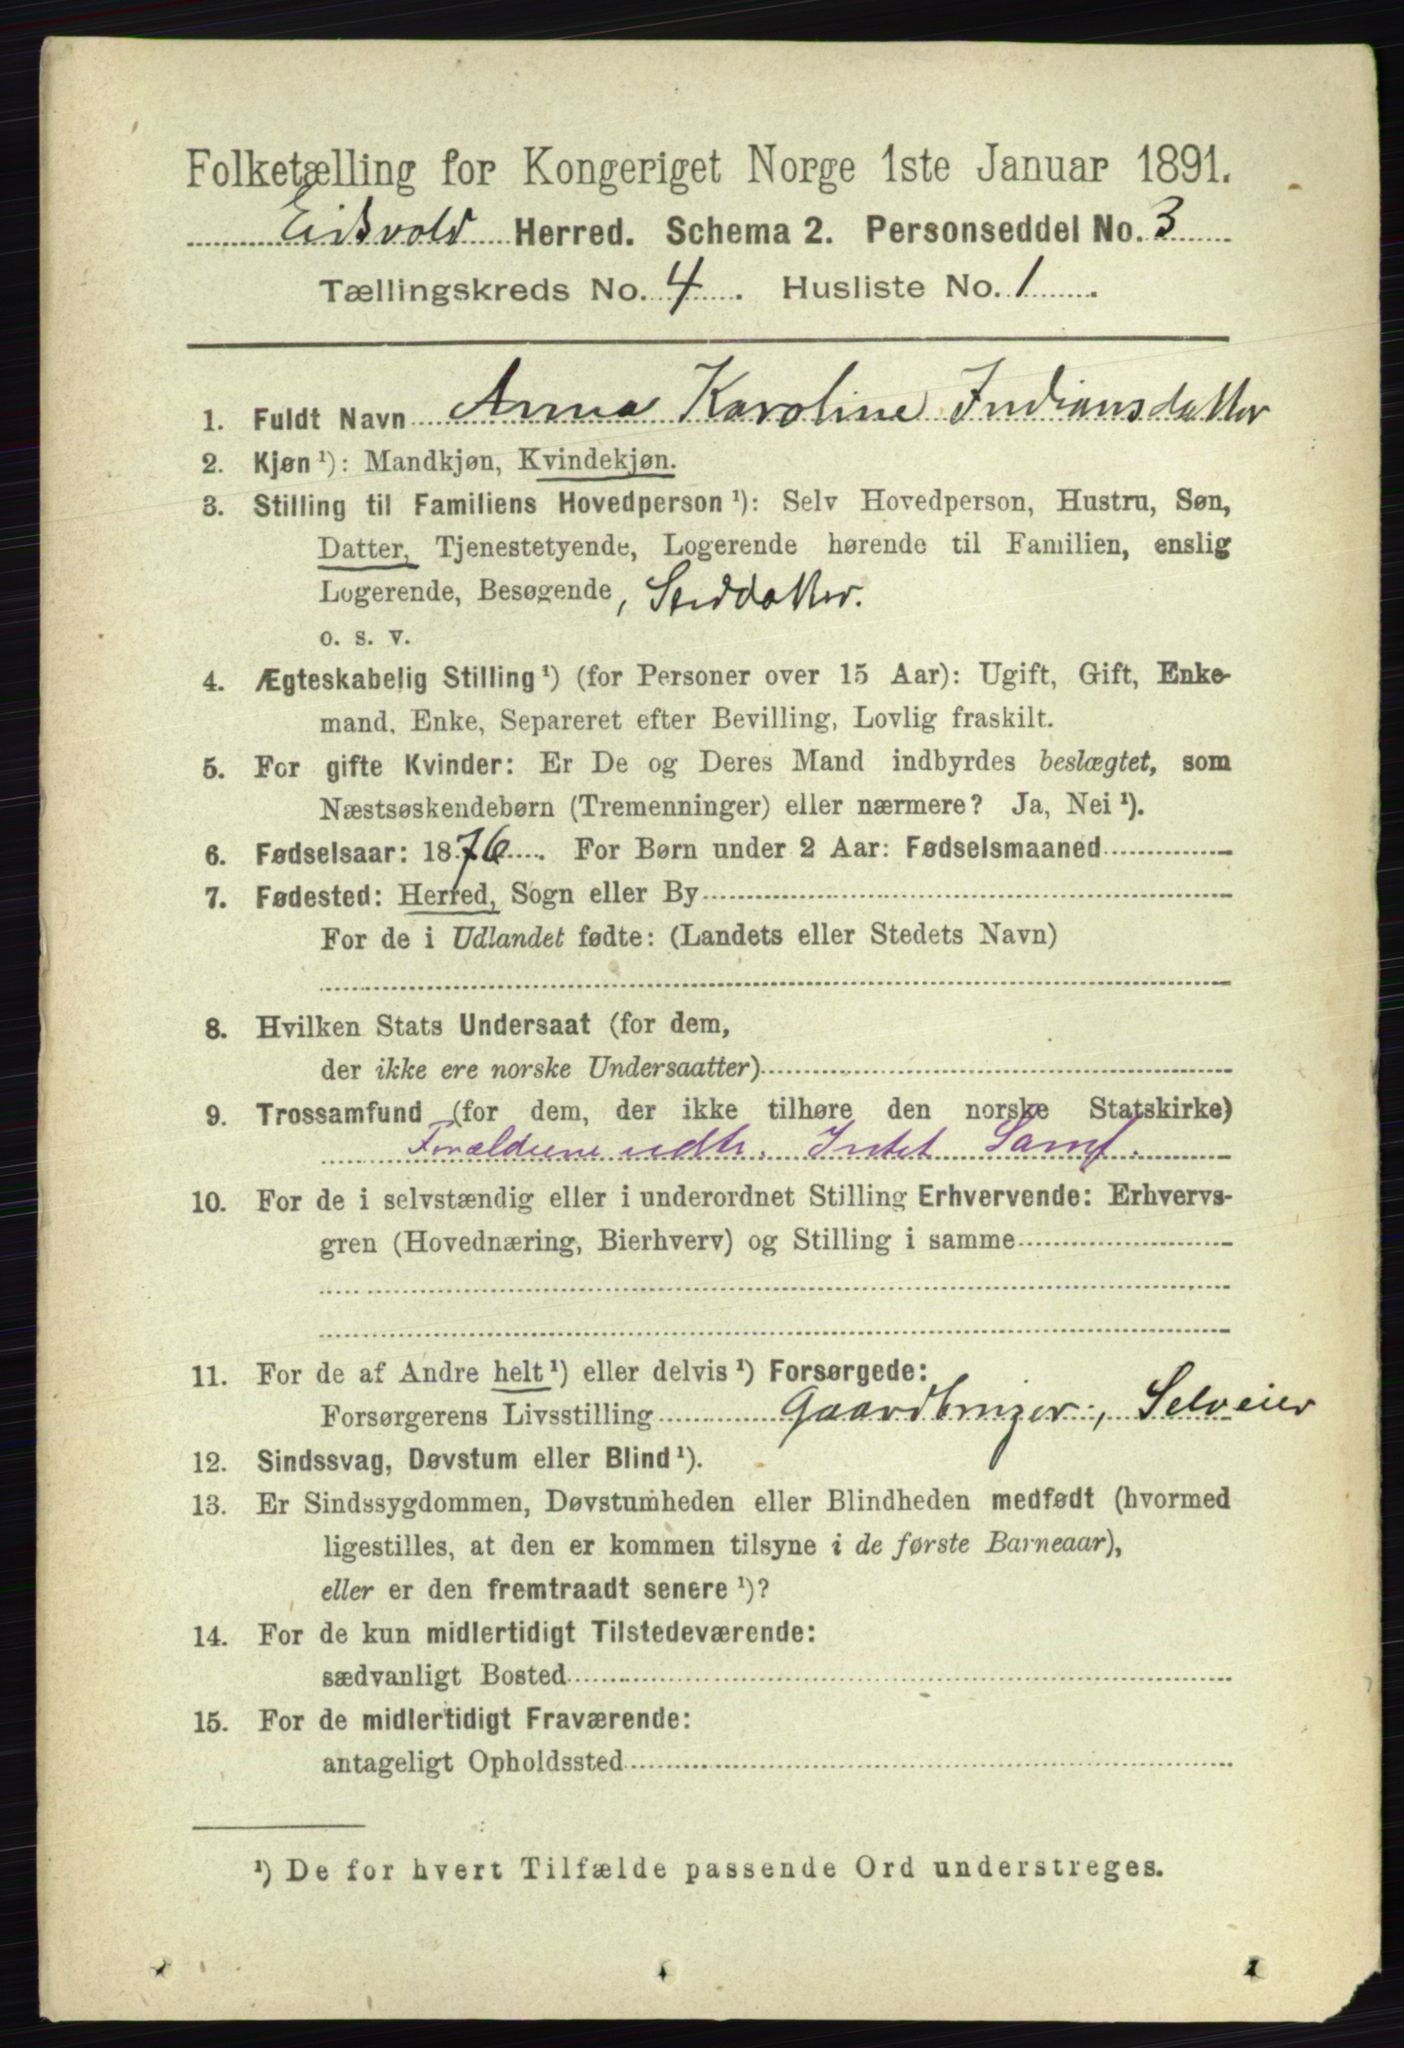 Folketælling for Kongeriget Norge 1ste Januar 1891.
Eidsvold Herred. Schema 2. Personseddel No. 3
Tællingskreds No. 4. Husliste No. 1.
1. Fuldt Navn Anna Karoline Indiansdatter
2. Kjøn ¹): Mandkjøn, Kvindekjøn.
3. Stilling til Familiens Hovedperson ¹): Selv Hovedperson, Hustru, Søn,
Datter, Tjenestetyende, Logerende hørende til Familien, enslig
Logerende, Besøgende, Steddatter.
o. s. v.
4. Ægteskabelig Stilling ¹) (for Personer over 15 Aar): Ugift, Gift, Enke-
mand, Enke, Separeret efter Bevilling, Lovlig fraskilt.
5. For gifte Kvinder: Er De og Deres Mand indbyrdes beslægtet, som
Næstsøskendebørn (Tremenninger) eller nærmere? Ja, Nei ¹).
6. Fødselsaar: 1876. For Børn under 2 Aar: Fødselsmaaned
7. Fødested: Herred, Sogn eller By
For de i Udlandet fødte: (Landets eller Stedets Navn)
8. Hvilken Stats Undersaat (for dem,
der ikke ere norske Undersaatter)
9. Trossamfund (for dem, der ikke tilhøre den norske Statskirke)
Forældrene udtr. Intet Samf.
10. For de i selvstændig eller i underordnet Stilling Erhvervende: Erhvervs-
gren (Hovednæring, Bierhverv) og Stilling i samme
11. For de af Andre helt ¹) eller delvis ¹) Forsørgede:
Forsørgerens Livsstilling Gaardbruger, Selveier
12. Sindssvag, Døvstum eller Blind ¹).
13. Er Sindssygdommen, Døvstumheden eller Blindheden medfødt (hvormed
ligestilles, at den er kommen tilsyne i de første Barneaar),
eller er den fremtraadt senere ¹)?
14. For de kun midlertidigt Tilstedeværende:
sædvanligt Bosted
15. For de midlertidigt Fraværende:
antageligt Opholdssted
¹) De for hvert Tilfælde passende Ord understreges.